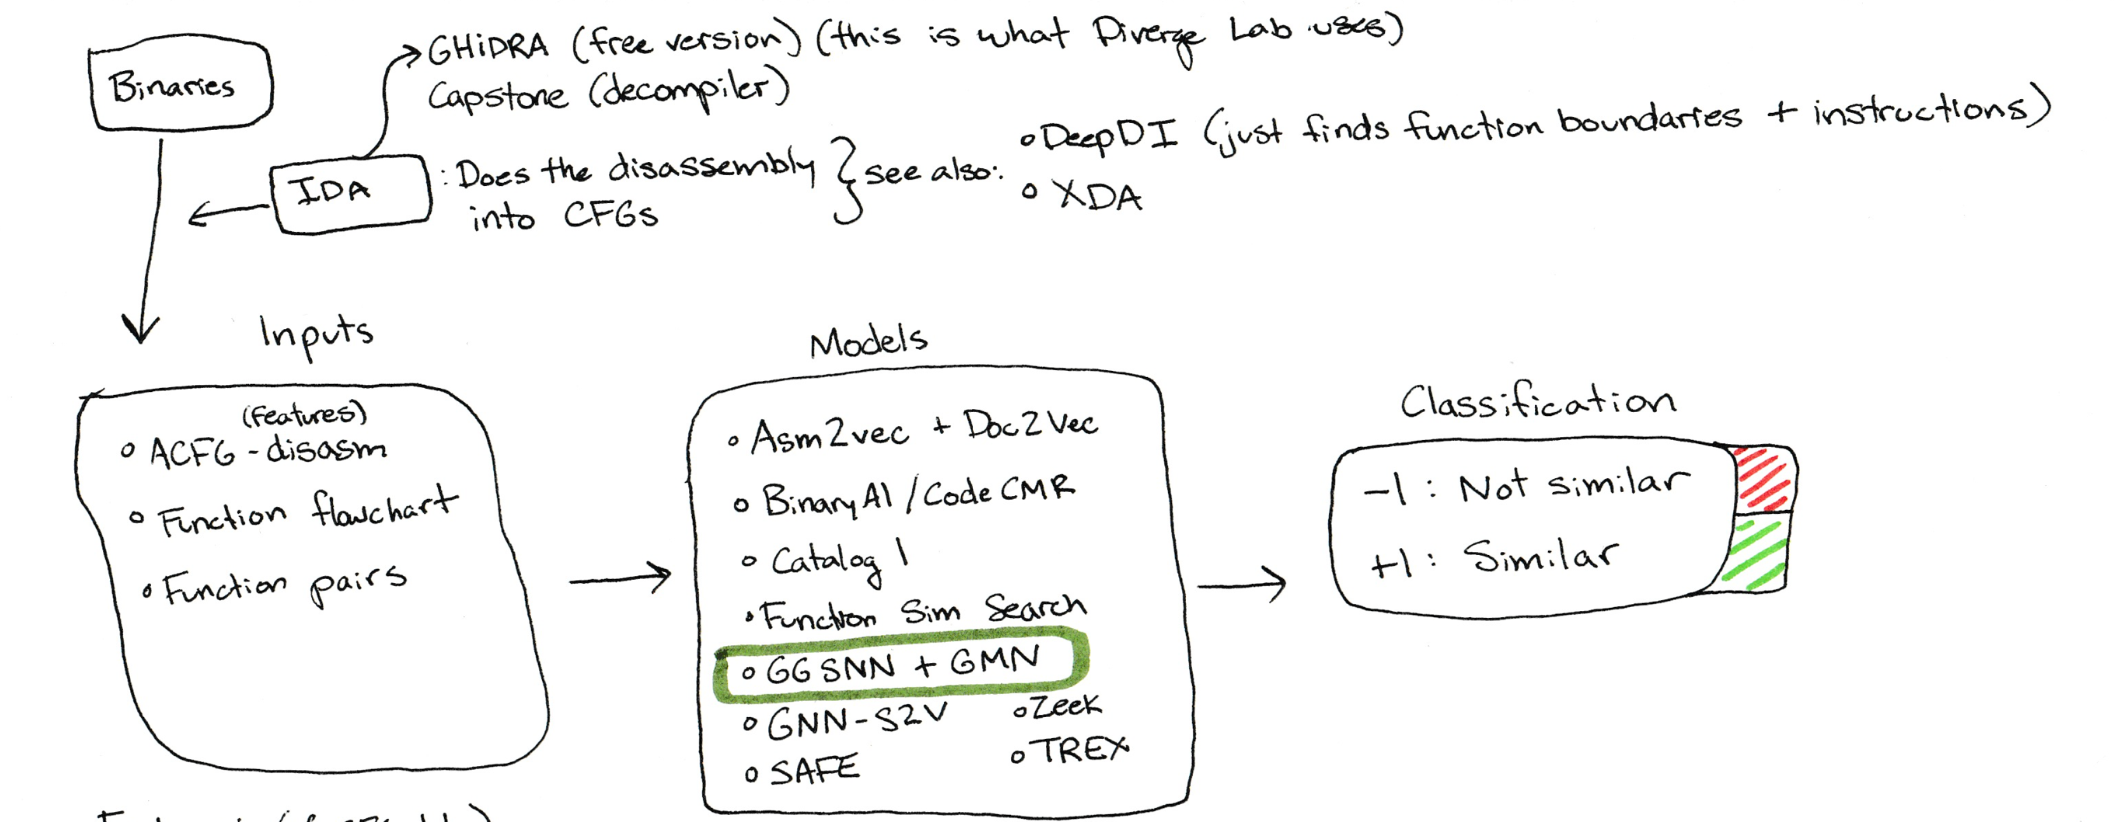 Binaries
GHiDRA (free version) (this is what Diverge Lab uses)
Capstone (decompiler)
IDA
: Does the disassembly
into CFGs
see also:
DeepDI (just finds function boundaries + instructions)
XDA
Inputs
(features)
ACFG-disasm
Function flowchart
Function pairs
Models
Asm2vec + Doc2Vec
BinaryAI / CodeCMR
Catalog 1
Function Sim Search
GGSNN + GMN
GNN-S2V
Zeek
SAFE
TREX
Classification
-1 : Not similar
+1 : Similar